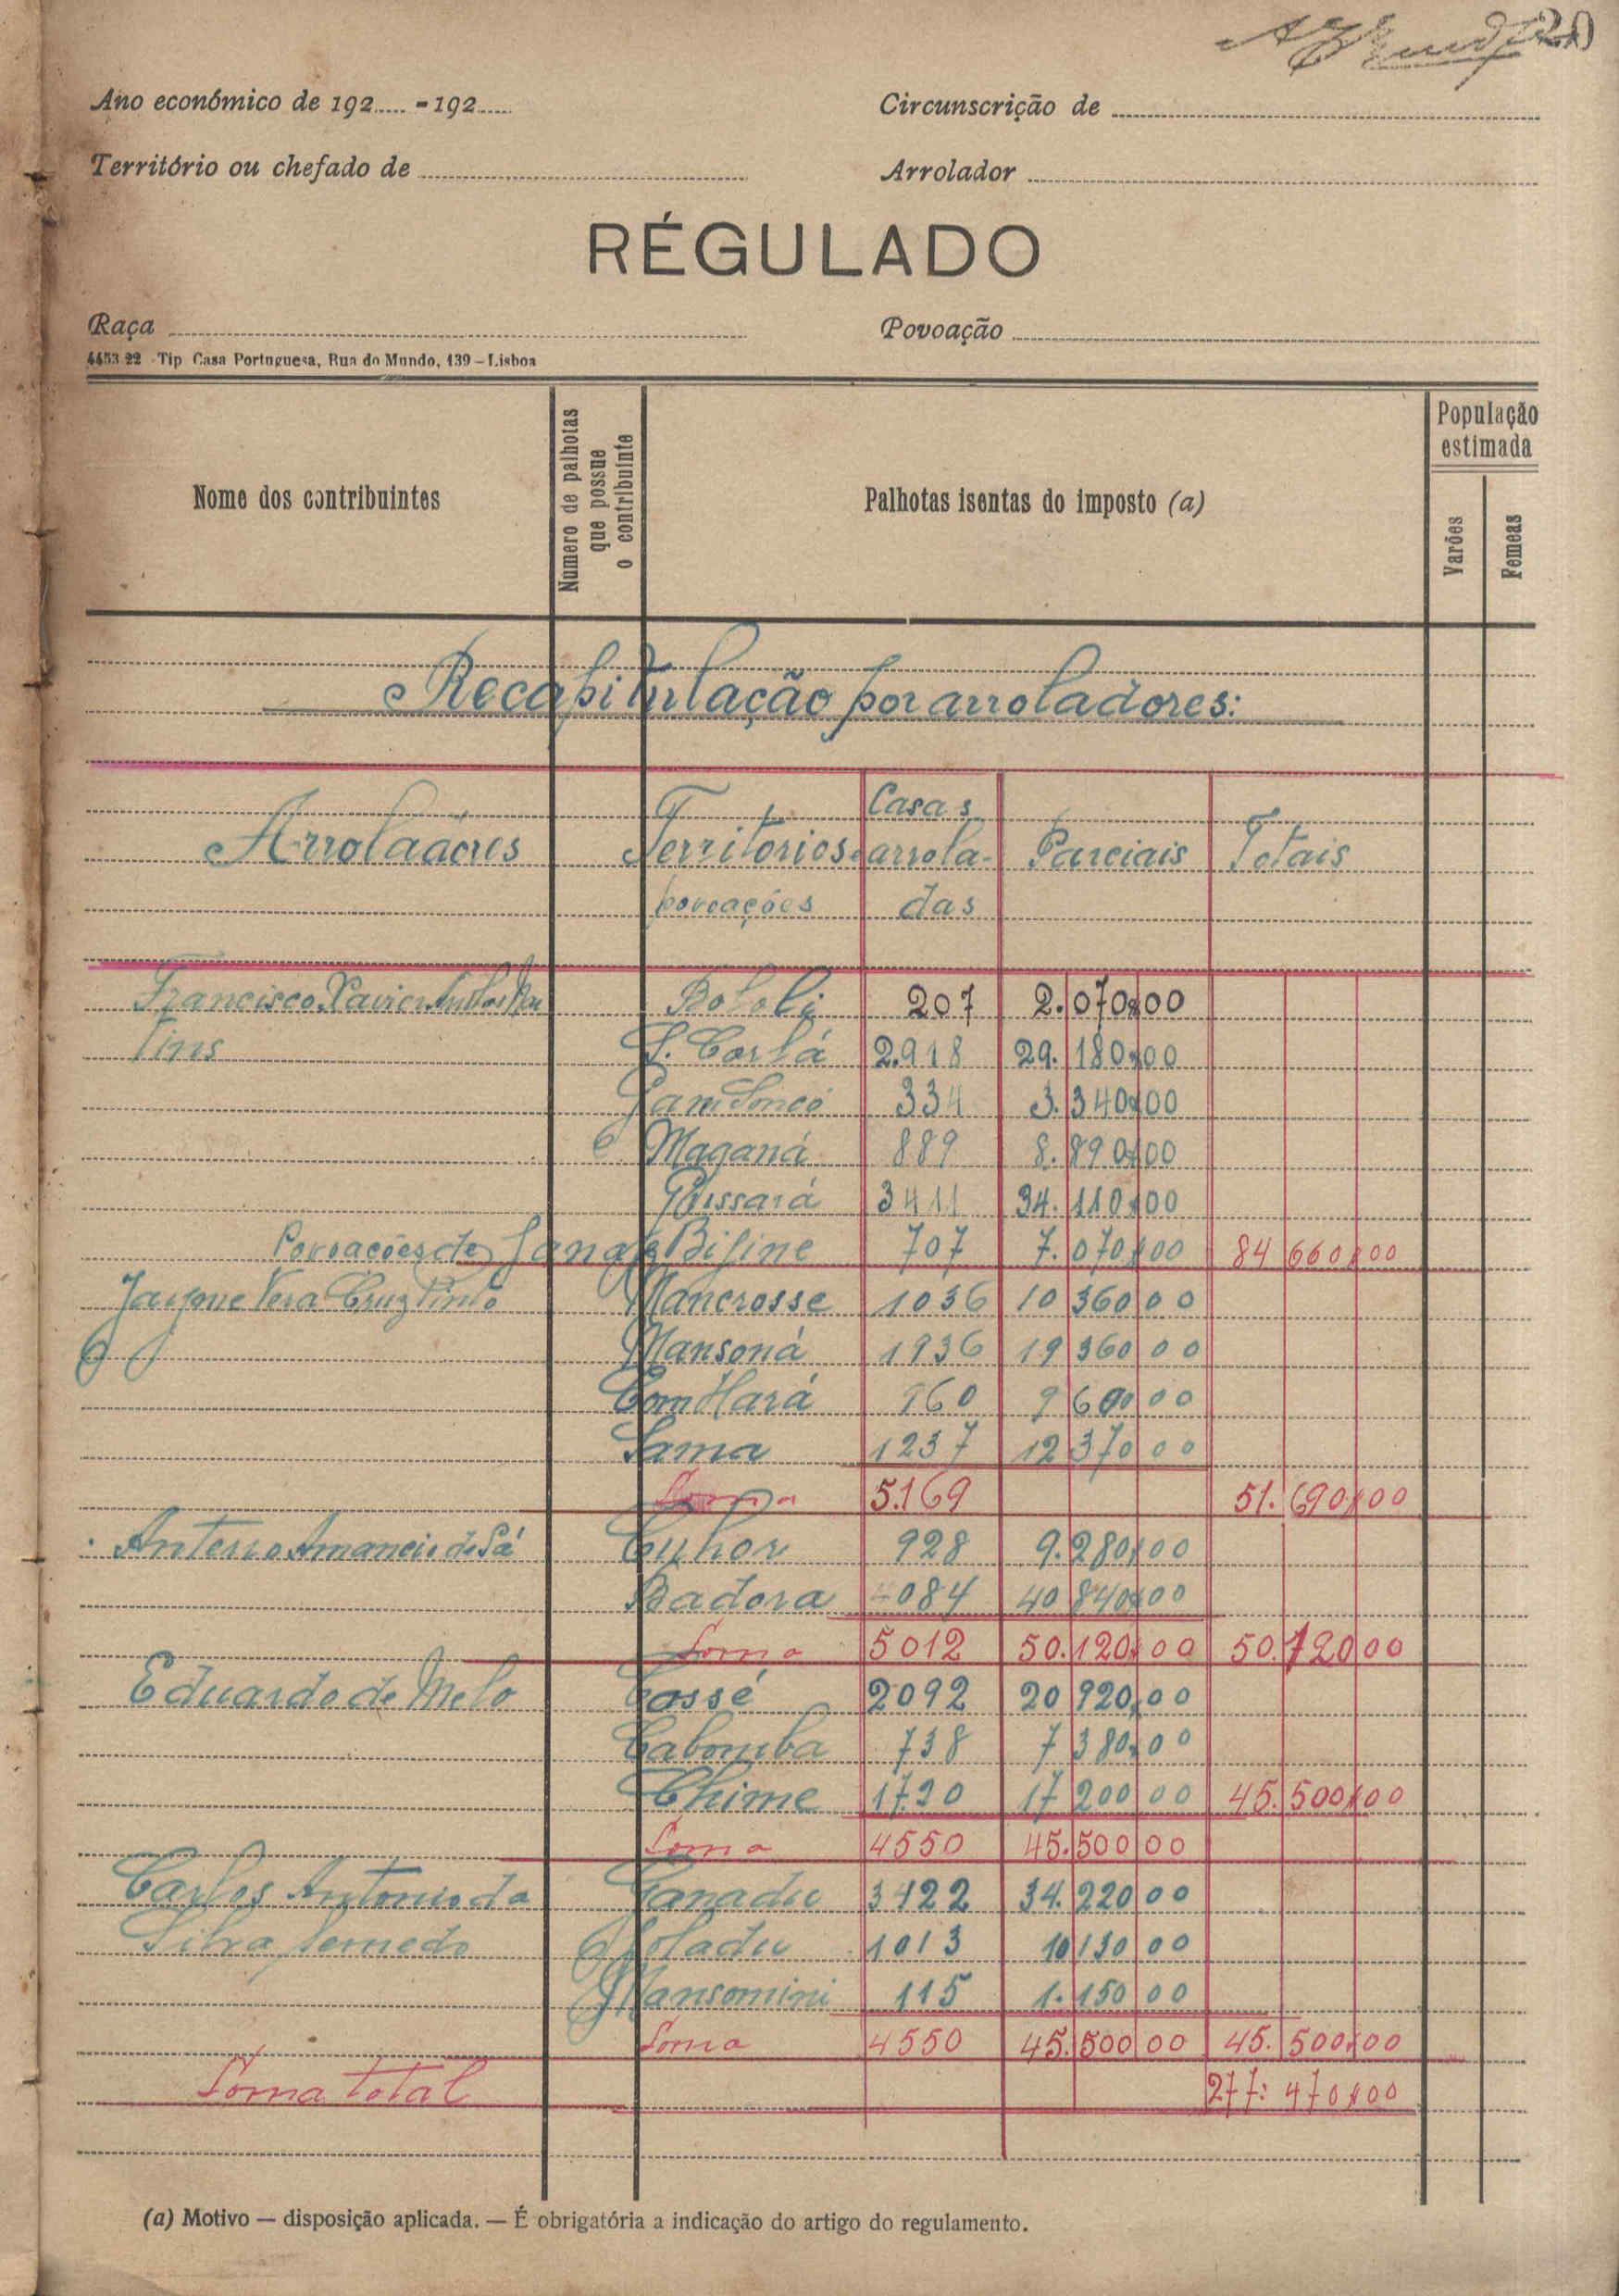 20
Ano económico de 192..... - 192..... Circunscrição de
Território ou chefado de Arrolador
RÉGULADO
Raça Povoação
4453 22 - Tip Casa Portuguesa, Rua do Mundo, 139 – Lisboa
Nome dos contribuintes
Numero de palhotas que possue o contribuinte
Palhotas isentas do imposto (a)
População estimada
Varões
Femeas
Recapitulação por arroladores:
Casas
Arroladores Territorios arrola- Parciais Totais
povoações das
Francisco Xavier Mar 207 2.070$00
tins S. Corlá 2.918 29.180$00
334 3.340$00
Maganá 889 8.890$00
Pussará 3411 34.110$00
Povoações de Bisine 707 7.070$00 84 660$00
Jayme Vera Cruz Pinto Mancrosse 1036 10 360 00
Mansoná 1936 19 360 00
960 9 600 00
Sama 1237 12 370 00
Soma 5.169 51.690$00
Antero Amancio de Sá Cuhor 928 9.280$00
Badora 4084 40 840$00
Soma 5012 50.120$00 50.120 00
Eduardo de Melo Cossé 2092 20 920,00
Cabomba 738 7 380$00
Chime 1720 17 200 00 45.500$00
Soma 4550 45.500 00
Carlos Antonio da Ganadu 3422 34.220 00
Silva Semedo Joladu 1013 10 130 00
Mansomini 115 1.150 00
Soma 4550 45.500 00 45.500$00
Soma total 277: 470$00
(a) Motivo — disposição aplicada. — É obrigatória a indicação do artigo do regulamento.